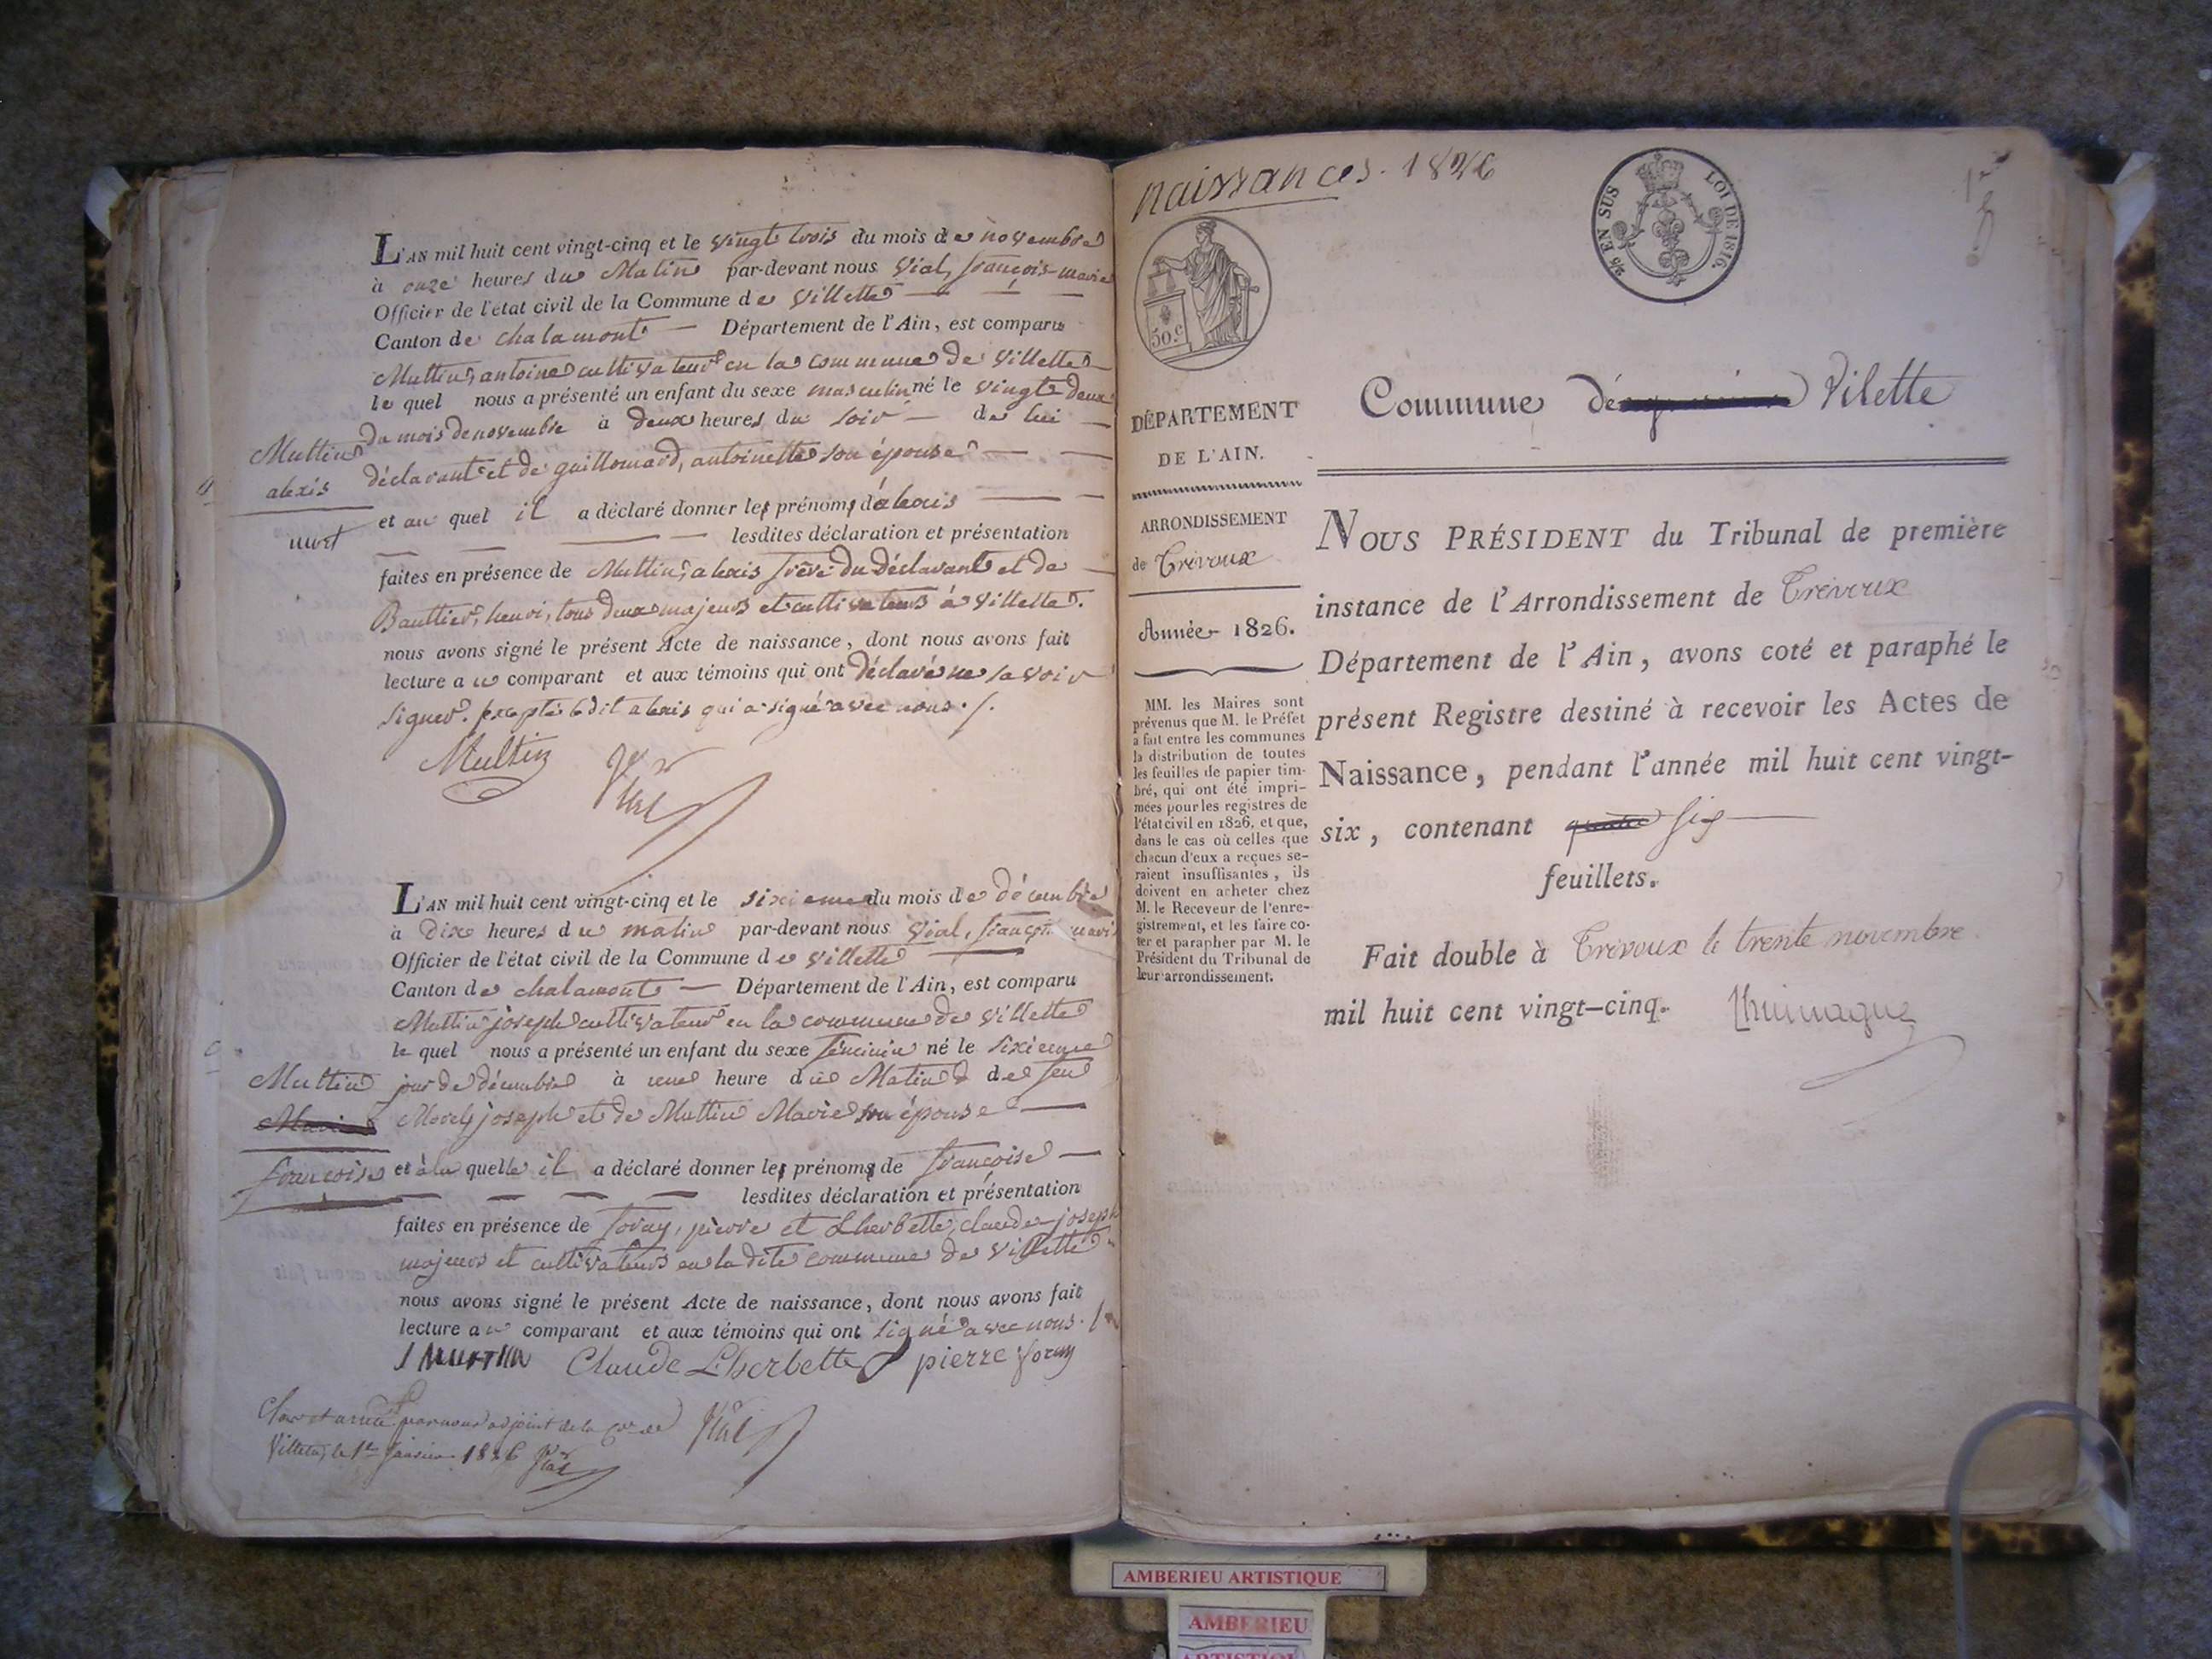 L'AN mil huit cent vingt-cinq et le vingt trois du mois de novembre
à onze heures du Matin par-devant nous Vial, françois-marie
Officier de l'état civil de la Commune de Villette
Canton de chalamont Département de l'Ain, est comparu
Multin, antoine cultivateur en la commune de Villette
le quel nous a présenté un enfant du sexe masculin né le vingt deux
du mois de novembre à deux heures du soir de lui
Multin
alexis
mort
déclarant et de guillomard, antoinette son épouse
et au quel il a déclaré donner les prénoms d'alexis
lesdites déclaration et présentation
faites en présence de Multin, alexis frère du déclarant et de
Bauttier, henri, tous deux majeurs et cultivateurs à Villette.
nous avons signé le présent Acte de naissance, dont nous avons fait
lecture au comparant et aux témoins qui ont déclaré ne savoir
signer. excepté ledit alexis qui a signé avec nous./.
Multin Vial
L'AN mil huit cent vingt-cinq et le sixieme du mois de décembre
à Dix heures du matin par-devant nous Vial, françois marie
Officier de l'état civil de la Commune de Villette
Canton de chalamont Département de l'Ain, est comparu
Multin joseph cultivateur en la commune de Villette
le quel nous a présenté un enfant du sexe féminin né le sixieme
Multin
Marie
françoise
jour de décembre à une heure du Matin de feu
Morel, joseph et de Multin Marie son épouse
et à la quelle il a déclaré donner les prénoms de françoise
lesdites déclaration et présentation
faites en présence de foray, pierre et Lherbette, claude-joseph
majeurs et cultivateurs en la dite commune de Villette
nous avons signé le présent Acte de naissance, dont nous avons fait
lecture au comparant et aux témoins qui ont signé avec nous./.
J MULTIN Claude Lherbette pierre foray
Clos et arrêté par nous adjoint de la Cne de Vial
Villette, le 1er Janvier 1826 Vial
naissances. 1826
1er
EN SUS LOI DE 1816.
50.c
DÉPARTEMENT
DE L'AIN.
ARRONDISSEMENT
de Trévoux
Année 1826.
MM. les Maires sont
prévenus que M. le Préfet
a fait entre les communes
la distribution de toutes
les feuilles de papier tim-
bré, qui ont été impri-
mées pour les registres de
l'état civil en 1826, et que,
dans le cas où celles que
chacun d'eux a reçues se-
raient insuffisantes, ils
doivent en acheter chez
M. le Receveur de l'enre-
gistrement, et les faire co-
ter et parapher par M. le
Président du Tribunal de
leur arrondissement.
Commune de Vilette
NOUS PRÉSIDENT du Tribunal de première
instance de l'Arrondissement de Trévoux
Département de l'Ain, avons coté et paraphé le
présent Registre destiné à recevoir les Actes de
Naissance, pendant l'année mil huit cent vingt-
six, contenant quatre six
feuillets.
Fait double à Trévoux le trente novembre
mil huit cent vingt-cinq.
AMBERIEU ARTISTIQUE
AMBERIEU
ARTISTIQUE